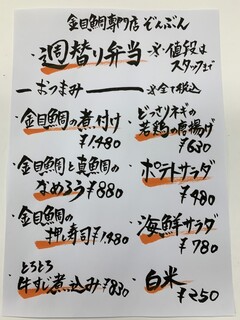 金目鯛専門店 ぞんぶん
・週替り弁当 ※値段は
スタッフまで
ーおつまみー ※全て税込
・金目鯛の煮付け
¥1,480
・どっさりネギの
若鶏の唐揚げ
¥630
・金目鯛と真鯛の
なめろう ¥880
・ポテトサラダ
¥480
・金目鯛の
押し寿司 ¥1,480
・海鮮サラダ
¥780
・とろとろ
牛すじ煮込み ¥830
・白米
¥250